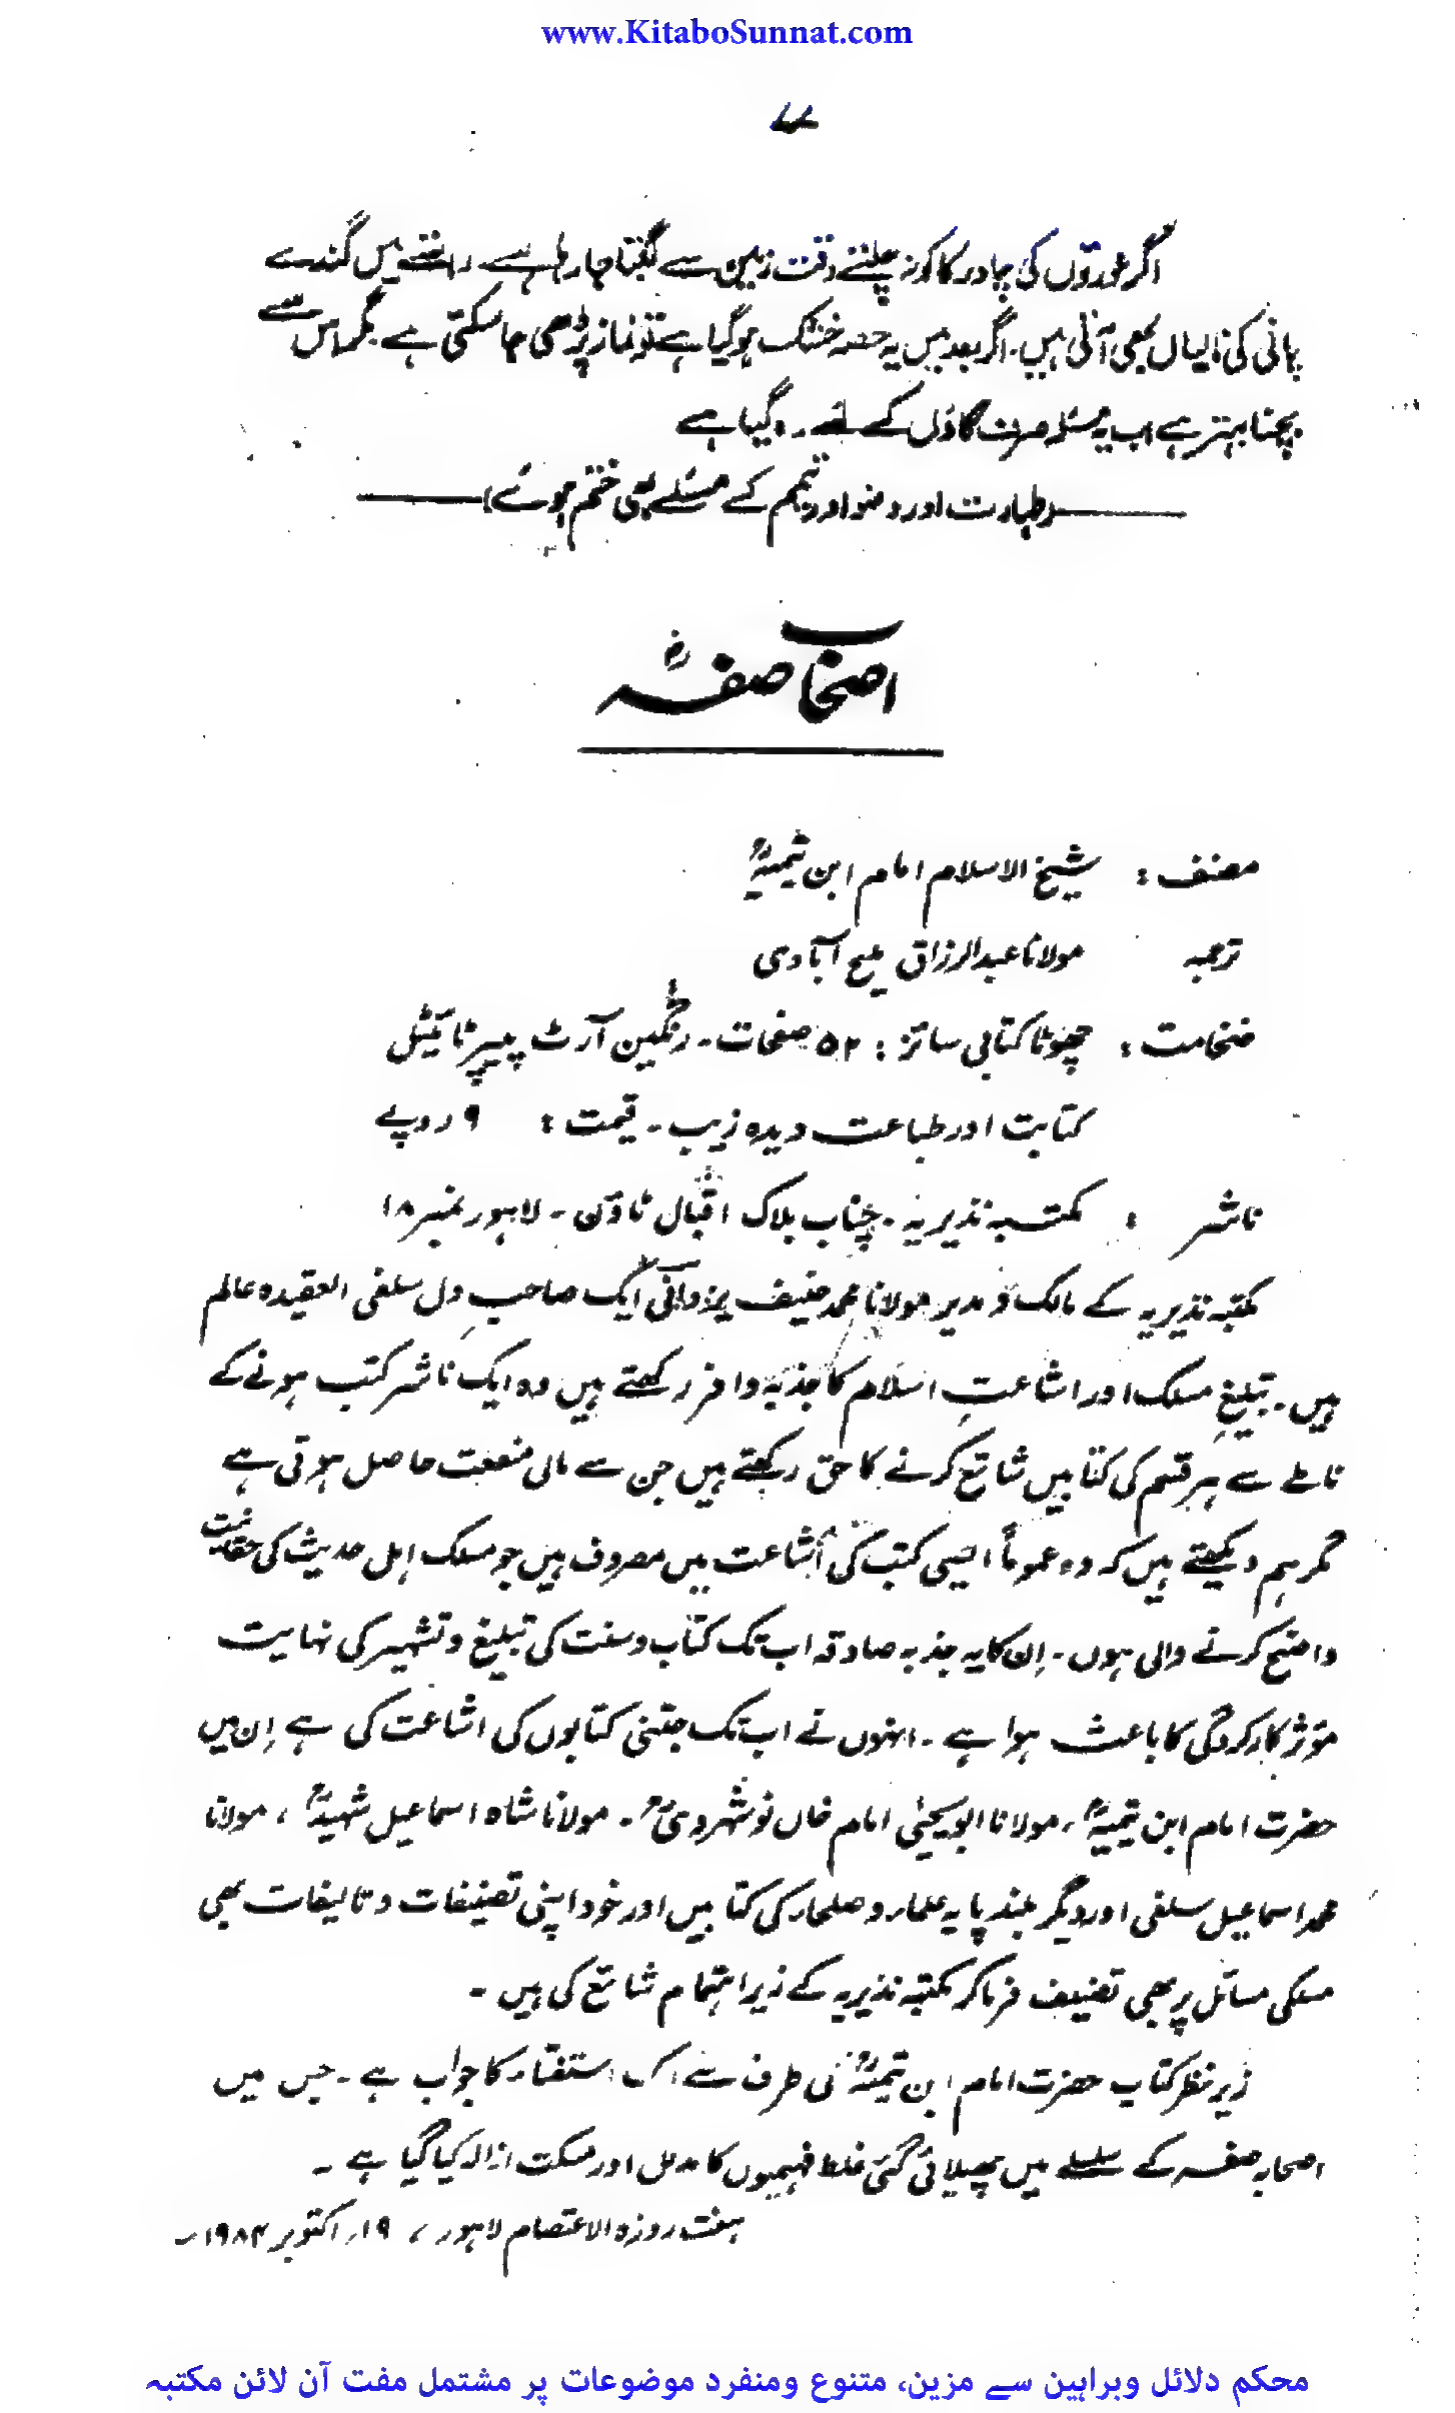 www.KitaboSunnat.com
اگر عورتوں کی چادر کا کونہ چلتے وقت زمین سے لگتا جا رہا ہے راستے میں گندے
پانی کی نالیاں بھی آتی ہیں۔ اگر بعد میں یہ حصہ خشک ہو گیا ہے تو نماز پڑھی جا سکتی ہے مگر اس سے
بچنا بہتر ہے اب یہ مسئلہ صرف گاؤں کے لئے رہ گیا ہے
(طہارت اور وضو اور تیمم کے مسئلے بھی ختم ہوئے)
اصحاب صفہؓ
مصنف : شیخ الاسلام امام ابن تیمیہؒ
ترجمہ مولانا عبدالرزاق ملیح آبادی
ضخامت : چھوٹا کتابی سائز : ۵۲ صفحات۔ رنگین آرٹ پیپر ٹائیٹل
کتابت اور طباعت دیدہ زیب۔ قیمت : ۹ روپے
ناشر : مکتبہ نذیریہ۔ چناب بلاک اقبال ٹاؤن۔ لاہور نمبر ۱۸
مکتبہ نذیریہ کے مالک و مدیر مولانا محمد حنیف یزدانی ایک صاحبِ دل سلفی العقیدہ عالم
ہیں۔ تبلیغِ مسلک اور اشاعتِ اسلام کا جذبہ وافر رکھتے ہیں وہ ایک ناشر کتب ہونے کے
ناطے سے ہر قسم کی کتابیں شائع کرنے کا حق رکھتے ہیں جن سے مالی منفعت حاصل ہوتی ہے
مگر ہم دیکھتے ہیں کہ وہ عموماً ایسی کتب کی اشاعت میں مصروف ہیں جو مسلک اہل حدیث کی حقانیت
واضح کرنے والی ہوں۔ اِن کا یہ جذبہ صادقہ اب تک کتاب و سنت کی تبلیغ و تشہیر کی نہایت
مؤثر کارکردگی کا باعث ہوا ہے۔ انہوں نے اب تک جتنی کتابوں کی اشاعت کی ہے اِن میں
حضرت امام ابن تیمیہؒ، مولانا ابو یحییٰ امام خاں نوشہرویؒ۔ مولانا شاہ اسماعیل شہیدؒ، مولانا
محمد اسماعیل سلفی اور دیگر بلند پایہ علماء و صلحاء کی کتابیں اور خود اپنی تصنیفات و تالیفات بھی
مسلکی مسائل پر بھی تصنیف فرما کر مکتبہ نذیریہ کے زیر اہتمام شائع کی ہیں۔
زیر نظر کتاب حضرت امام ابن تیمیہؒ کی طرف سے اک استفتاء کا جواب ہے۔ جس میں
اصحاب صفہ کے سلسلے میں پھیلائی گئی غلط فہمیوں کا مدلل اور مسکت ازالہ کیا گیا ہے۔
ہفت روزہ الاعتصام لاہور، ۱۹ اکتوبر ۱۹۸۴ء
محکم دلائل وبراہین سے مزین، متنوع ومنفرد موضوعات پر مشتمل مفت آن لائن مکتبہ